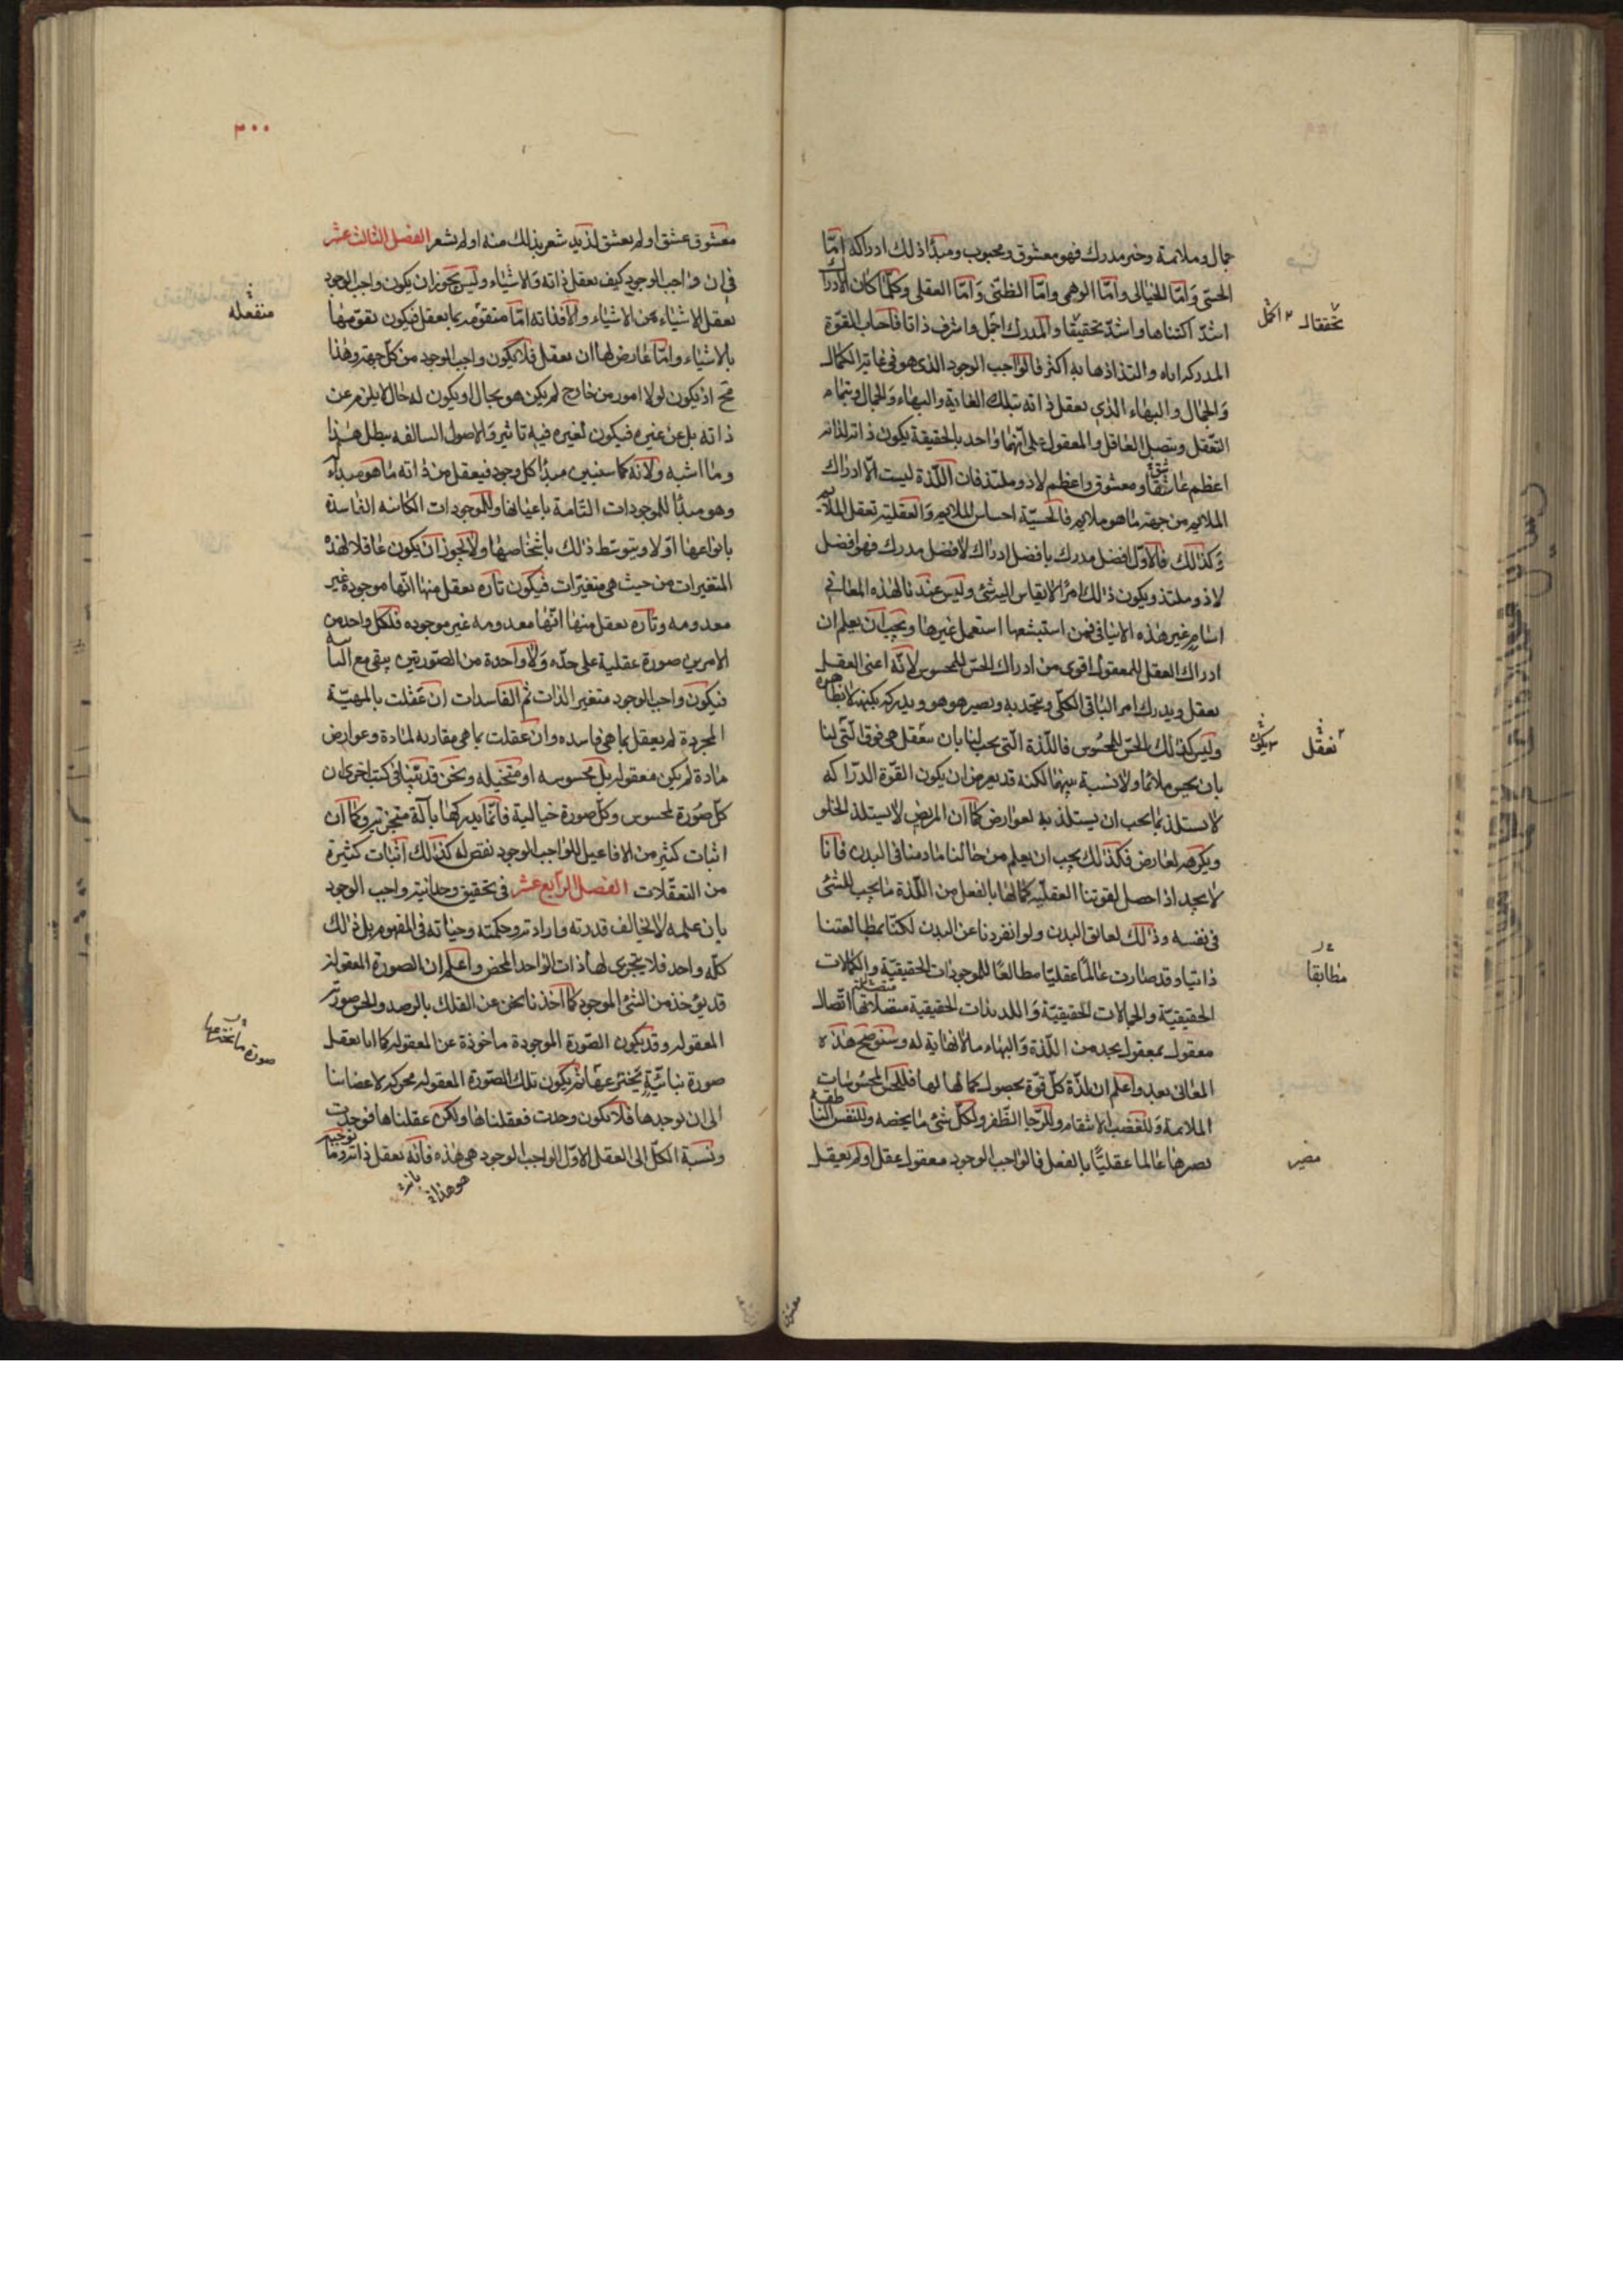 جمال وملائمة وخير مدرك فهو معشوق ومحبوب ومبدأ ذلك ادراكه امّا
الحسّى وَامّا الخيالى وامّا الوهمى وامّا الظنّى وَامّا العقلى وكلّما كان الادراك
اشدّ اكتناها واشدّ تحقيقًا والمدرك اجمل واشرف ذاتا فاحباب القوّة
المدركه اياه والتذاذها به اكثر فالواجب الوجود الذى هو فى غاية الكمال
وَالجمال والبهاء الذى يعقل ذاته بتلك الغاية والبهاء وَالجمال وبتمام
التّعقل وبتعقل العاقل والمعقول على انّهما واحد بالحقيقة يكون ذاته لذاته
اعظم عاشق ومعشوق واعظم لاذ وملتذ فان اللّذة ليست الّا ادراك
الملايم من جهة ما هو ملايم فالحسيّة احساس الملايم وَالعقلية تعقل الملايم
وَكذلك فالاوّل افضل مدرك بافضل ادراك لافضل مدرك فهو افضل
لاذ وملتذ ويكون ذلك امرًا لا يقاس اليه شئ وليس عندنا لهذه المعانى
اسامٍ غير هذه الاسامى فمن استبشعها استعمل غيرها ويجب ان يعلم ان
ادراك العقل للمعقول اقوى من ادراك الحسّ للمحسوس لانّه اعنى العقل
يعقل ويدرك امر الباقى الكلّى ويتحد به ويصير هو هو ويدركه بكنهه لا بظاهره
وليس كذلك الحسّ للمحسوس فاللّذة الّتى يجب لنا بان نتعقل هى فوق الّتى لنا
بان نحس ملائمًا ولا نسبة بينهما لكنه قد يعرض ان يكون القوّة الدرّاكه
لا يستلذ بما يجب ان يستلذ به لعوارض كما ان المريض لا يستلذ الحلو
ويكرهه لعارض فكذلك يجب ان يعلم من حالنا ما دمنا فى البدن فانا
لا نجد اذا حصل لقوتنا العقليّه كمالها بالفعل من اللّذة ما يجب للشئ
فى نفسه وذلك لعائق البدن ولو انفردنا عن البدن لكنّا بمطالعتنا
ذاتنا وقد صارت عَالمًا عقليّا مطالعًا للموجودات الحقيقيّة والكمالات
الحقيقيّة والجمالات الحقيقيّة وَاللذيذات الحقيقية متصلة بها اتّصال
معقول بمعقول يجد من اللّذة وَالبهاء ما لا نهاية له وسنوضح هذه
المعانى بعد واعلم ان لذّة كلّ قوّة بحصول كمالها لها فللحسّ المحسوسات
الملائمة وَللغضب الانتقام وللرّجا الظّفر ولكلّ شئ ما يخصه وللنفس الناطقة
تصيرها عالما عقليًّا بالفعل فالواجب الوجود معقول عقل او لم يعقل
تحققا
اكمل
نعقل
يكون
مطابقا
مصير
معشوق
٣٠٠
معشوق عشق او لم يعشق لذيد شعر بذلك منه او لم يشعر الفصل الثالث عشر
فى ان واجب الوجود كيف يعقل ذاته وَالاشيَاء وليس يجوز ان يكون واجب الوجود
يعقل الاشيَاء من الاشيَاء والّا فذاته امّا متقوّمه بما يعقل فيكون تقوّمها
بالاشيَاء وامّا عَارض لها ان يعقل فلا يكون واجب الوجود من كلّ جهة وهذا
مح اذ يكون لولا امور من خارج لم يكن هو بحال او يكون له حال لا يلزم عن
ذاته بل عن غيره فيكون لغيره فيه تاثير وَالاصول السالفه يبطل هذا
وما اشبه ولانّه كما سنبين مبدأ كل وجود فيعقل من ذاته ما هو مبدأ له
وهو مبدأ للموجودات التّامة باعيانها وللموجودات الكائنه الفاسدة
بانواعها اوّلا وبتوسّط ذلك باشخاصها ولا يجوز ان يكون عاقلا لهذه
المتغيرات من حيث هى متغيّرات فيكون تاره يعقل منها انّها موجودة غير
معدومه وتاره يعقل منها انّها معدومه غير موجوده فلكلّ واحد من
الامرين صورة عقلية على حدّه وَلا واحدة من الصّورتين يبقى مع الثانية
فيكون واجب الوجود متغير الذات ثم الفاسدات ان عقلت بالمهيّة
المجردة لم يعقل بما هى فاسده وان عقلت بما هى مقارنه لمادة وعوارض
مادة لم يكن معقوله بل محسوسه او متخيله ونحن قد بيّنا فى كتب اخرى ان
كلّ صورة لمحسوس وكلّ صورة خيالية فانّما يدركها بآلة متجزئه وكما ان
اثبات كثير من الافاعيل للواجب الوجود نقص له كذلك اثبات كثيرة
من التعقّلات الفصل الرابع عشر فى تحقيق وحدانية واجب الوجود
بان علمه لا يخالف قدرته وارادته وحكمته وحياته فى المفهوم بل ذلك
كلّه واحد فلا يتجزى لها ذات الواحد المحض واعلم ان الصورة المعقولة
قد يؤخذ من الشئ الموجود كما اخذنا نحن عن الفلك بالرصد والحس صورته
المعقوله وقد يكون الصّورة الموجودة ماخوذة عن المعقوله كما انا نعقل
صورة بنائيّة نخترعها ثم يكون تلك الصّورة المعقوله محركه لاعضائنا
الى ان نوجدها فلا يكون وجدت فعقلناها ولكن عقلناها فوجدت
ونسبة الكلّ الى العقل الاوّل الواجب الوجود هى هذه فانّه يعقل ذاته وما
منفعله
صورة ما نخترعها